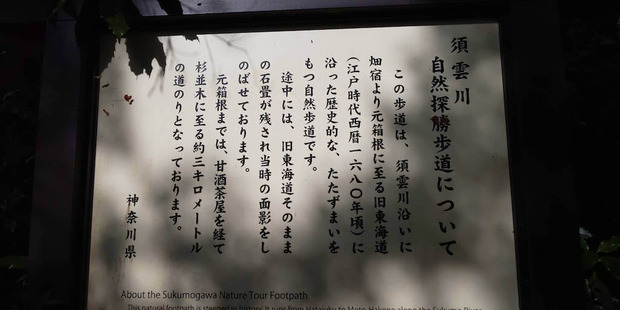 須雲川
自然探勝歩道について
この歩道は、須雲川沿いに
畑宿より元箱根に至る旧東海道
(江戸時代西暦一六八〇年頃)に
沿った歴史的な、たたずまいを
もつ自然歩道です。
途中には、旧東海道そのまま
の石畳が残され当時の面影をし
のばせております。
元箱根までは、甘酒茶屋を経て
杉並木に至る約三キロメートル
の道のりとなっております。
神奈川県
About the Sukumogawa Nature Tour Footpath
This natural footpath is steeped in history. It runs from Hatajuku to Moto-Hakone along the Sukumo River